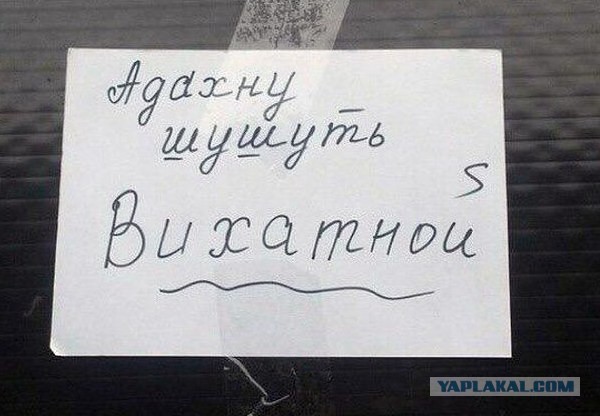 Адахну
шушуть
Вихатной
YAPLAKAL.COM